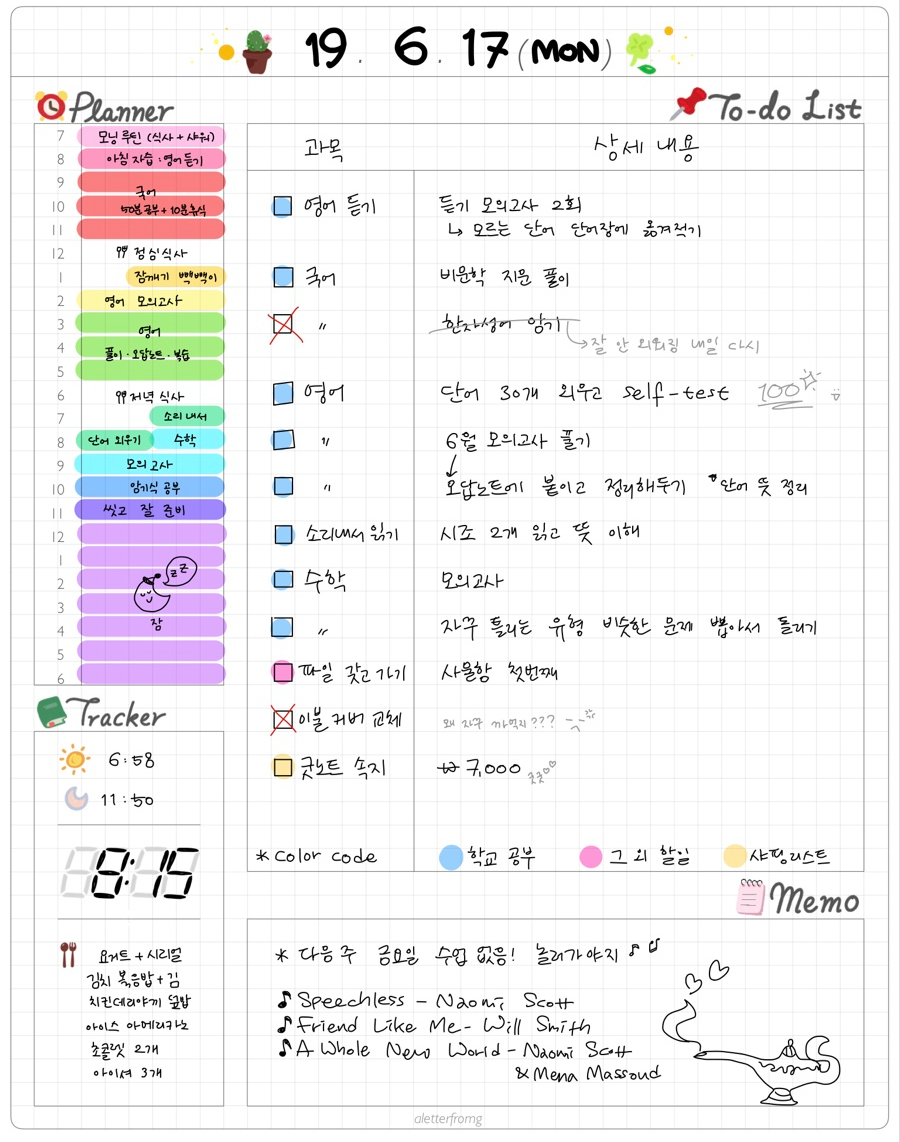 19. 6. 17 (MON)
Planner
7 모닝 루틴 (식사 + 샤워)
8 아침 자습 : 영어 듣기
9
국어
10 50분 공부 + 10분 휴식
11
12 점심식사
1 잠깨기 빽빽이
2 영어 모의고사
3 영어
4 풀이 · 오답노트 · 복습
5
6 저녁 식사
7 소리 내서
8 단어 외우기 수학
9 모의고사
10 암기식 공부
11 씻고 잘 준비
12
1
2 zz
3
4 잠
5
6
Tracker
6:58
11:50
8:15
요거트 + 시리얼
김치 볶음밥 + 김
치킨데리야끼 덮밥
아이스 아메리카노
초콜릿 2개
아이셔 3개
To-do List
과목 상세 내용
영어 듣기 듣기 모의고사 2회
↳ 모르는 단어 단어장에 옮겨적기
국어 비문학 지문 풀이
〃 한자성어 암기
→ 잘 안 외워짐 내일 다시
영어 단어 30개 외우고 self-test 100
〃 6월 모의고사 풀기
〃 오답노트에 붙이고 정리해두기 *단어 뜻 정리
소리내서 읽기 시조 2개 읽고 뜻 이해
수학 모의고사
〃 자꾸 틀리는 유형 비슷한 문제 뽑아서 돌리기
파일 갖고 가기 사물함 첫번째
이불 커버 교체 왜 자꾸 까먹지???
굿노트 속지 ₩ 7,000 굿굿♡♡
* color code 학교 공부 그 외 할일 쇼핑리스트
Memo
* 다음 주 금요일 수업 없음! 놀러가야지 ♪♫
♪ Speechless - Naomi Scott
♪ Friend Like Me - Will Smith
♪ A Whole New World - Naomi Scott
& Mena Massoud
aletterfromg